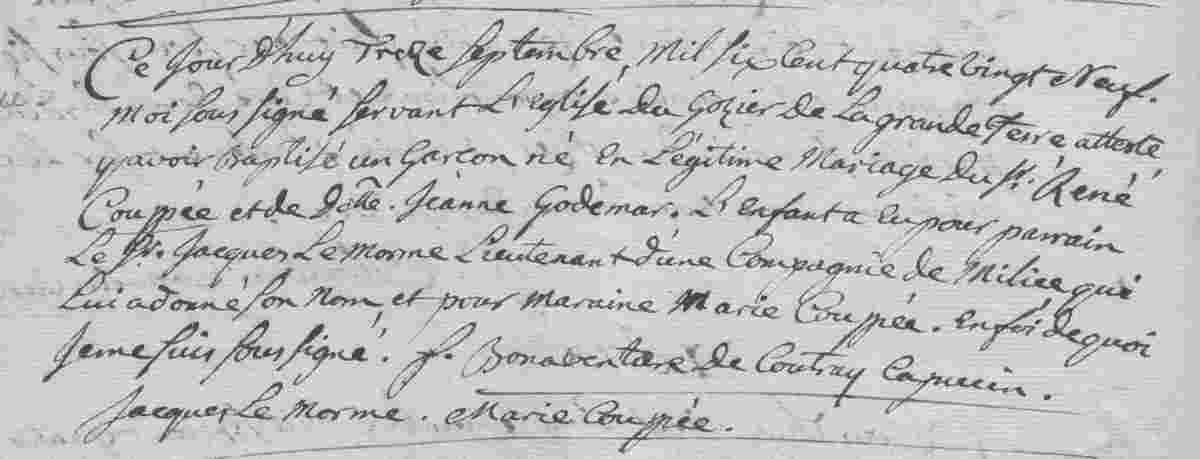 Ce Jour d'huy Treize Septembre, Mil six Cent quatre vingt Neuf.
Moi sous signé servant L'eglise du Gozier de La grande Terre atteste
y avoir Baptisé un Garçon né En Légitime Mariage du Sr. René
Couppée et de Dlle. Jeanne Godemar. L'enfant a Eu pour parrain
Le Sr. Jacques Le Morme Lieutenant d'une Compagnie de Milice qui
Lui a donné son Nom, et pour Maraine Marie Couppée. En foi de quoi
Je me suis sous signé. f. Bonaventure de Coutray Capucin.
Jacques Le Morme. Marie Couppée.